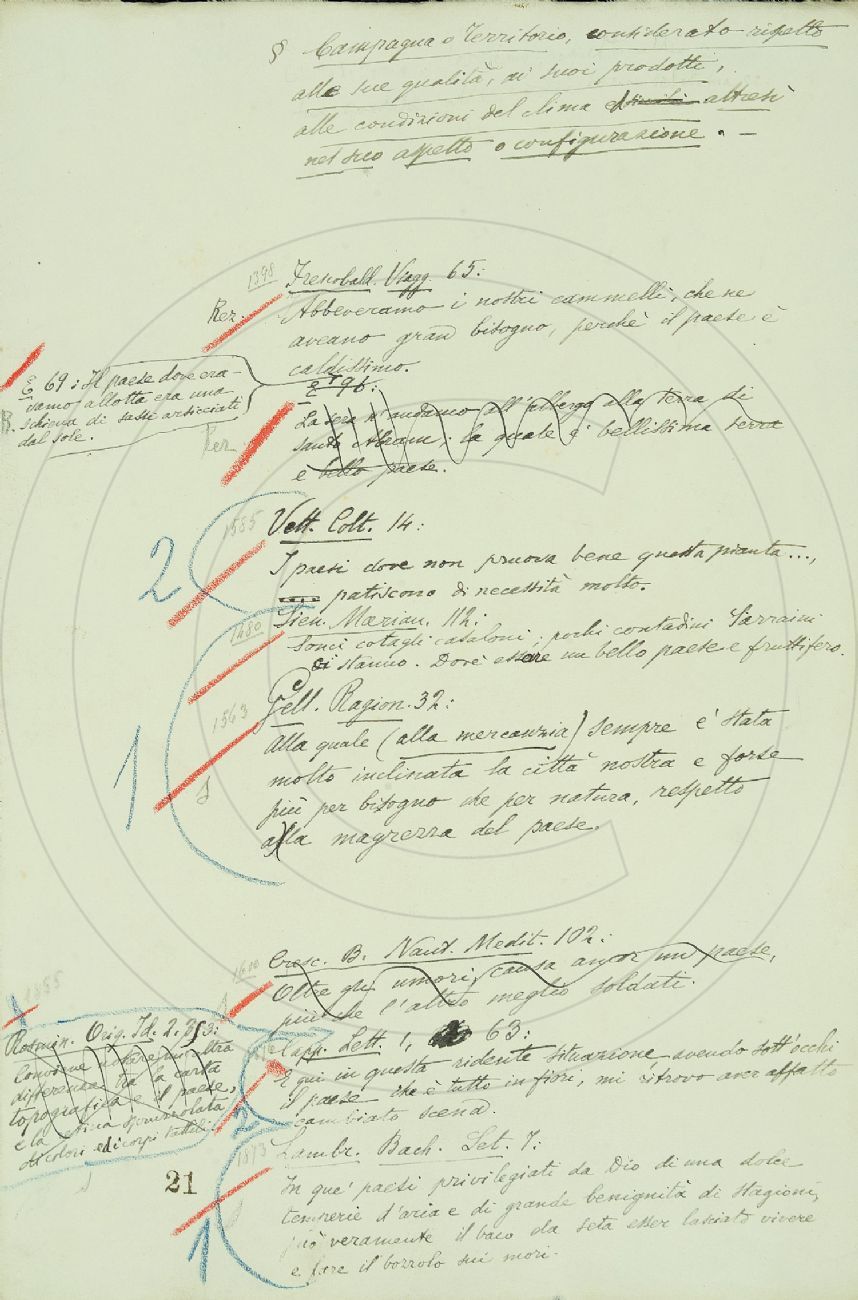 § Campagna o Territorio, considerato rispetto
alle sue qualità, ai suoi prodotti,
alle condizioni del clima altresì
nel suo aspetto o configurazione. —
1398
Frescobald. Viagg. 65:
Rez.
Abbeveramo i nostri cammelli, che ne
aveano gran bisogno, perchè il paese è
caldissimo.
E 69: Il paese dove era-
vamo allotta era una
schiena di sassi arsicciati
dal sole.
B.
E 96:
Rez.
La sera n'andamo all'albergo alla terra di
santo Abram, la quale è bellissima terra
e bello paese.
2
1585
Vett. Colt. 14:
I paesi dove non pruova bene questa pianta...,
patiscono di necessità molto.
1480
Sien. Marian. 112:
Sonci cotagli casaloni; pochi contadini Sarraini
ci stanno. Dové essere un bello paese e fruttifero.
1
1563
Gell. Ragion. 32:
Alla quale (alla mercanzia) sempre è stata
molto inclinata la città nostra e forse
più per bisogno che per natura, rispetto
alla magrezza del paese.
1600
Cresc. B. Naut. Medit. 102:
Oltre gli umori, causa ancor un paese,
più che l'altro meglio soldati.
1855
Rosmin. Orig. Id. 2, 313:
Conviene
differenza tra la carta
topografica e il paese,
e la
di colori e di corpi tattili.
Capp. Lett. 1, 63:
E qui in questa ridente situazione, avendo sott'occhi
il paese che è tutto in fiori, mi ritrovo aver affatto
cambiato scena.
2
1873
Lambr. Bach. Set. 7:
In que' paesi privilegiati da Dio di una dolce
temperie d'aria e di grande benignità di stagioni,
può veramente il baco da seta esser lasciato vivere
e fare il bozzolo sui mori.
1
21